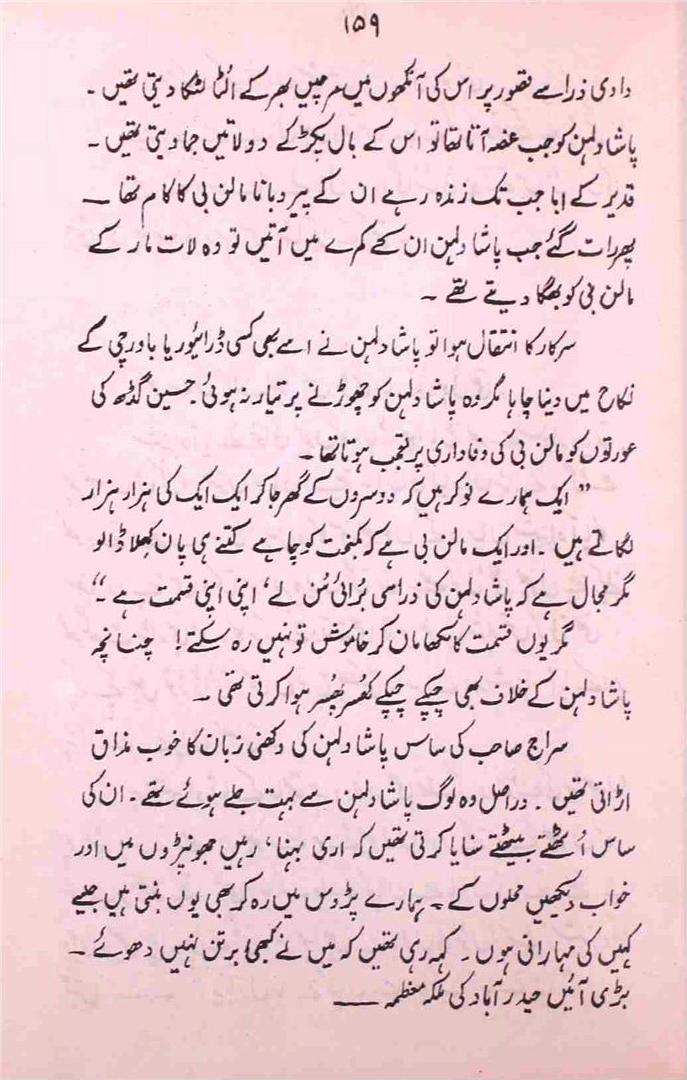 ۱۵۹
دادی ذرا سے قصور پر اس کی آنکھوں میں مرچیں بھر کے الٹا لٹکا دیتی تھیں ۔
پاشا دلہن کو جب غصہ آتا تھا تو اس کے بال پکڑ کے دو لاتیں جما دیتی تھیں ۔
قدیر کے ابا جب تک زندہ رہے ان کے پیر دبانا مالن بی کا کام تھا ــ
پھر رات گئے جب پاشا دلہن ان کے کمرے میں آتیں تو وہ لات مار کے
مالن بی کو بھگا دیتے تھے ۔
سرکار کا انتقال ہوا تو پاشا دلہن نے اسے بھی کسی ڈرائیور یا باورچی کے
نکاح میں دینا چاہا مگر وہ پاشا دلہن کو چھوڑنے پر تیار نہ ہوئی۔ حسین گڈھ کی
عورتوں کو مالن بی کی وفاداری پر تعجب ہوتا تھا ۔
” ایک ہمارے نوکر ہیں کہ دوسروں کے گھر جا کر ایک ایک کی ہزار ہزار
لگاتے ہیں ۔ اور ایک مالن بی ہے کہ کمبخت کو چاہے کتنے ہی پان کھلا ڈالو
مگر مجال ہے کہ پاشا دلہن کی ذرا سی برائی سُن لے، اپنی اپنی قسمت ہے ۔“
مگر یوں قسمت کا لکھا مان کر خاموش تو نہیں رہ سکتے ! چنانچہ
پاشا دلہن کے خلاف بھی چپکے چپکے کُھسر پُھسر ہوا کرتی تھی ۔
سراج صاحب کی ساس پاشا دلہن کی دکھنی زبان کا خوب مذاق
اڑاتی تھیں ۔ دراصل وہ لوگ پاشا دلہن سے بہت جلے ہوئے تھے ۔ ان کی
ساس اُٹھتے بیٹھتے سنایا کرتی تھیں کہ اری بہنا، رہیں جھونپڑوں میں اور
خواب دیکھیں محلوں کے ۔ ہمارے پڑوس میں رہ کر بھی یوں بنتی ہیں جیسے
کہیں کی مہارانی ہوں ۔ کہہ رہی تھیں کہ میں نے کبھی برتن نہیں دھوئے ۔
بڑی آئیں حیدر آباد کی ملکہ معظمہ ــــ